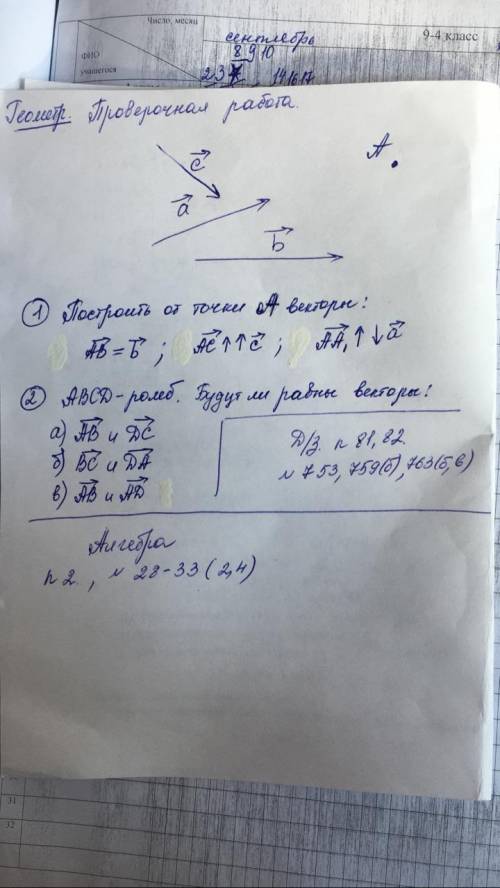 Число, месяц
сентябрь
9-4 класс
8 9 10
ФИО
учащегося
14 16 17
Геометр. Проверочная работа.
A
c
a
b
① Построить от точки A векторы:
AB = b ; AC ↑↑ c ; AA₁ ↑↓ a
② ABCD - ромб. Будут ли равны векторы:
а) AB и DC
б) BC и DA
в) AB и AD
Д/з. п 81, 82.
№ 753, 759(б), 763(б, в)
Алгебра
п 2., № 28-33 (2,4)
31
32